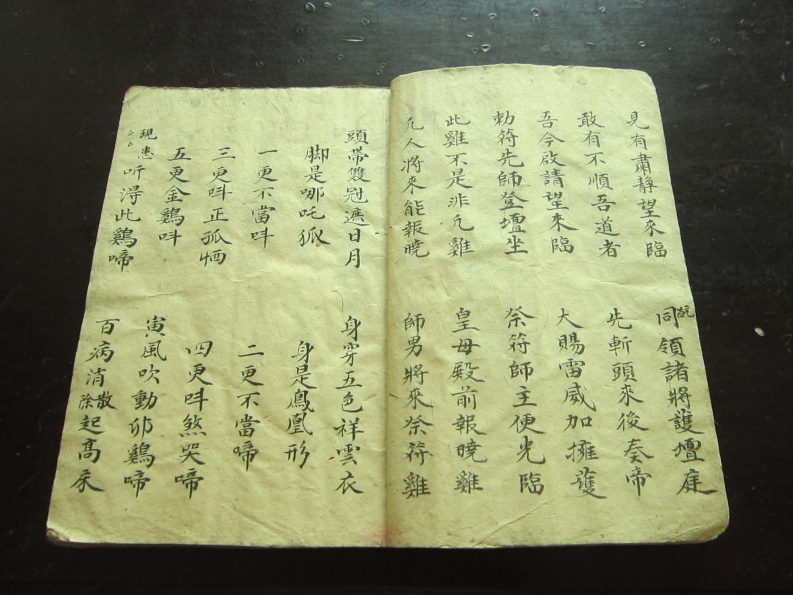 見有肅靜望來臨
同領諸將護壇庭
敢有不順吾道者
先斬頭來後奏帝
吾今啟請望來臨
大賜雷威加擁護
勅符先師登壇坐
祭符師主便光臨
此雞不是非凡雞
皇母殿前報曉雞
凡人將來能報曉
師男將來祭符雞
頭帶雙冠遮日月
身穿五色祥雲衣
脚是哪吒狐
身是鳳凰形
一更不當呌
二更不當啼
三更呌正孤恓
四更呌煞哭啼
五更金鷄呌
寅風吹動卯鷄啼
現患聽得此鷄啼
百病消散除起高床